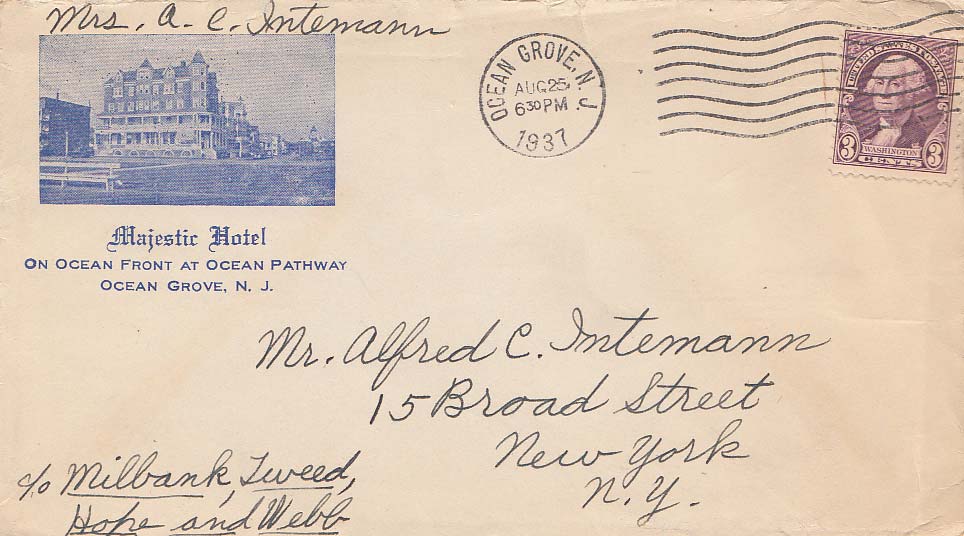 Mrs. A. C. Intemann
OCEAN GROVE, N. J.
AUG 25
6 30 PM
1937
UNITED STATES POSTAGE
3 WASHINGTON 3
CENTS
Majestic Hotel
ON OCEAN FRONT AT OCEAN PATHWAY
OCEAN GROVE, N. J.
Mr. Alfred C. Intemann
15 Broad Street
New York
N. Y.
c/o Milbank, Tweed,
Hope and Webb